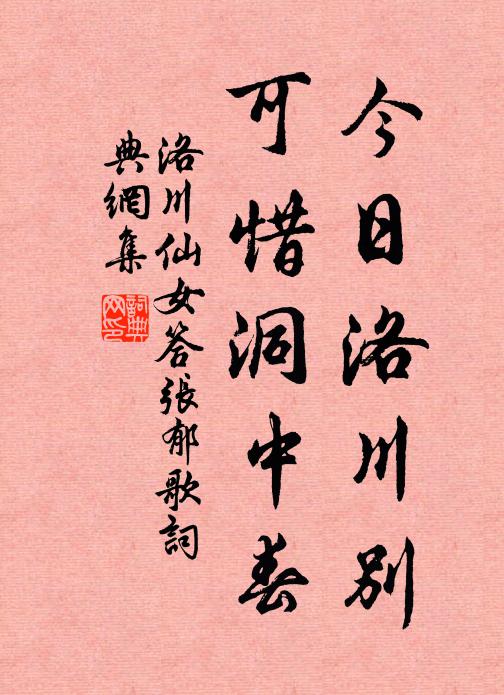 今日洛川別
可惜洞中春
洛川仙女答張郁歌詞
典網集
詞典網印